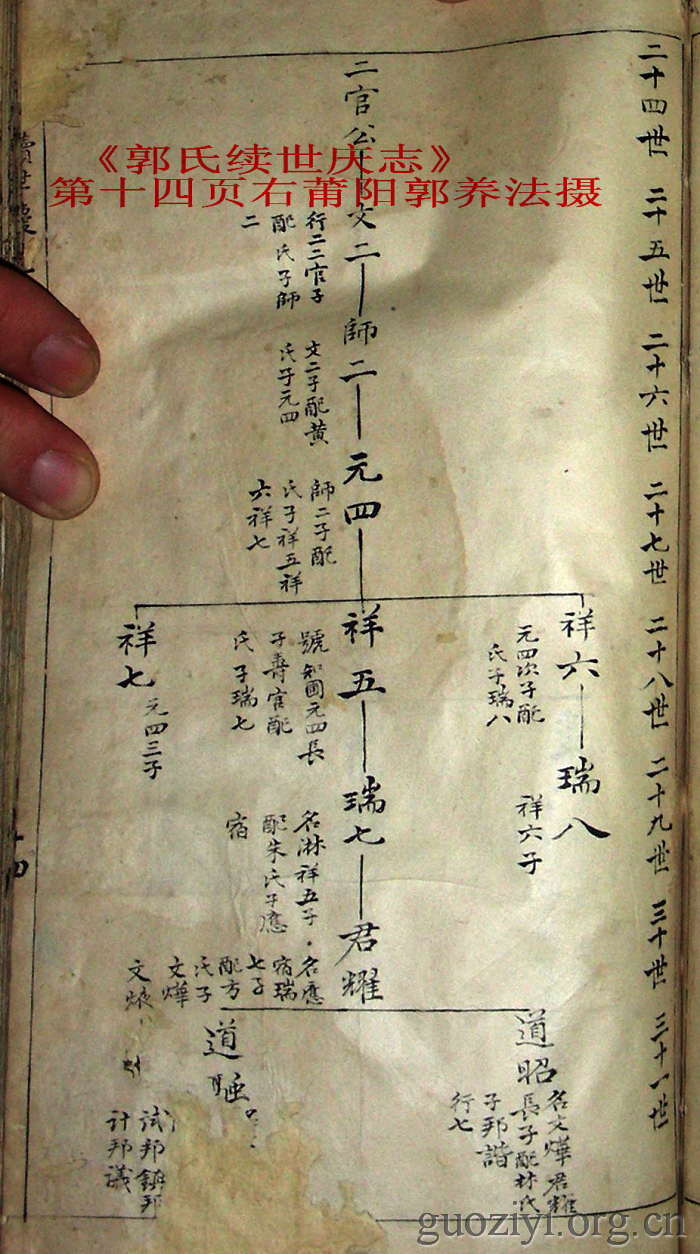 二十四世 二十五世 二十六世 二十七世 二十八世 二十九世 三十世 三十一世
二官公
文二
行二二官子
配氏子師
二
師二
文二子配黃
氏子元四
元四
師二子配
氏子祥五祥
六祥七
祥六
元四次子配
氏子瑞八
瑞八
祥六子
祥五
元四長
子壽官配
氏子瑞七
瑞七
名淋祥五子
配朱氏子應
宿
君耀
名應
宿瑞
七子
配方
氏子
文燁
文
祥七
元四三子
道昭
名文燁君耀
長子配林氏
子邦譜
行七
道
試邦
計邦議
《郭氏续世庆志》
第十四页右莆阳郭养法摄
guoziyi.org.cn